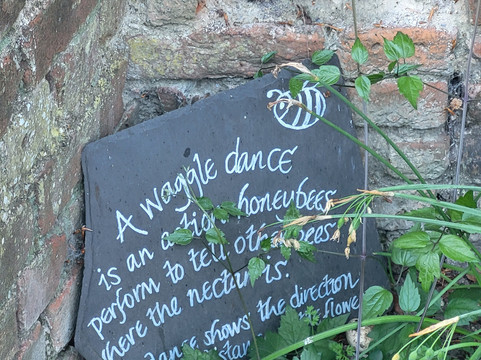 A waggle dance
is an action honeybees
perform to tell other bees
where the nectar is.
dance shows the direction
flowe